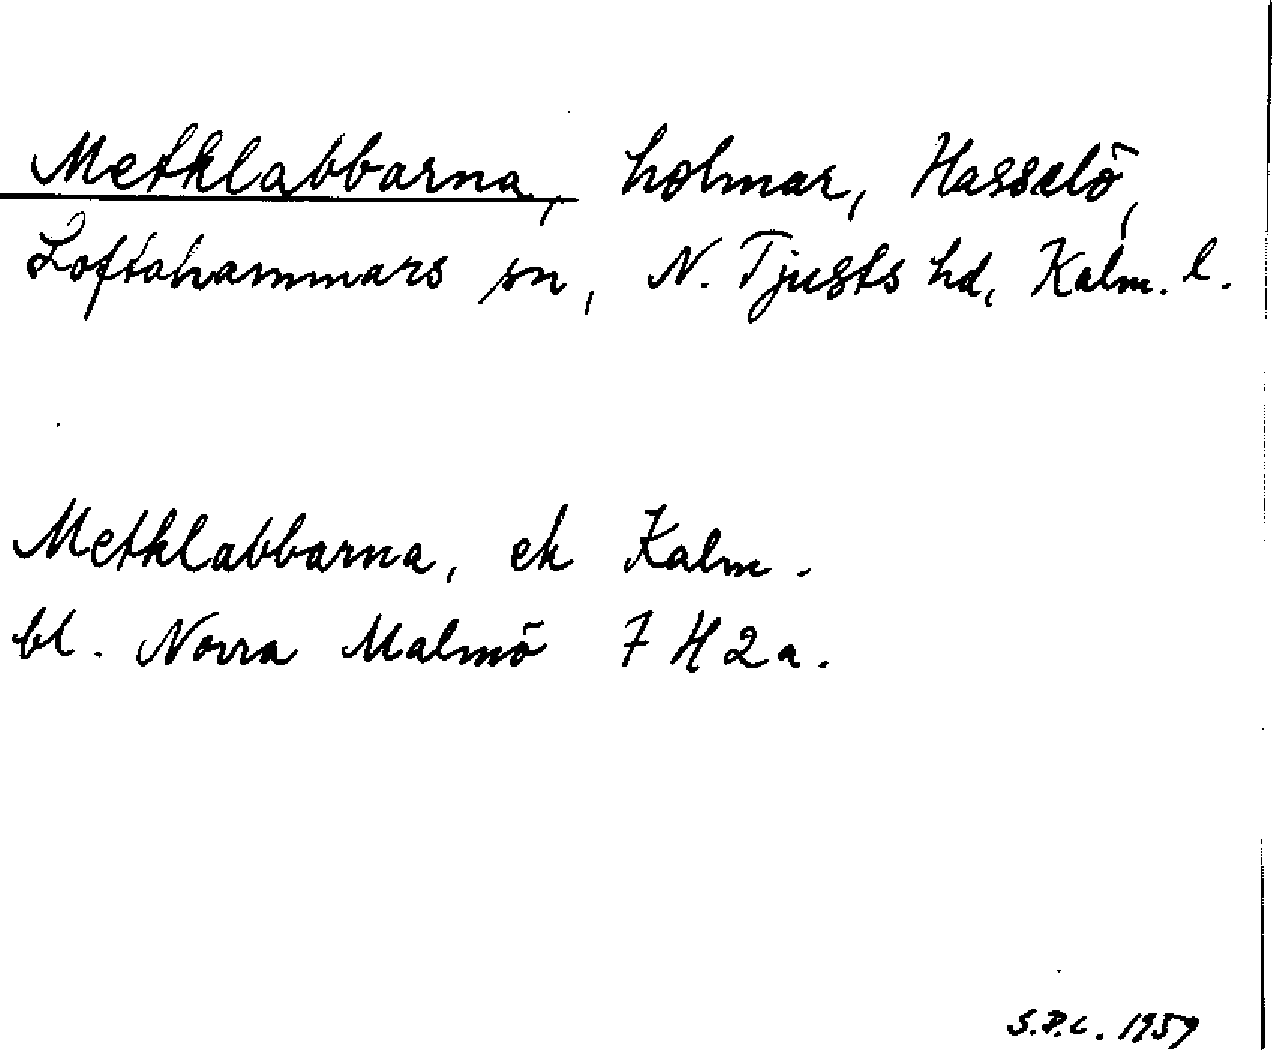 Metklabbarna, holmar, Hasselö,
Loftahammars sn, N. Tjusts hd, Kalm. l.
Metklabbarna, ek Kalm.
bl. Norra Malmö 7 H 2 a.
1959